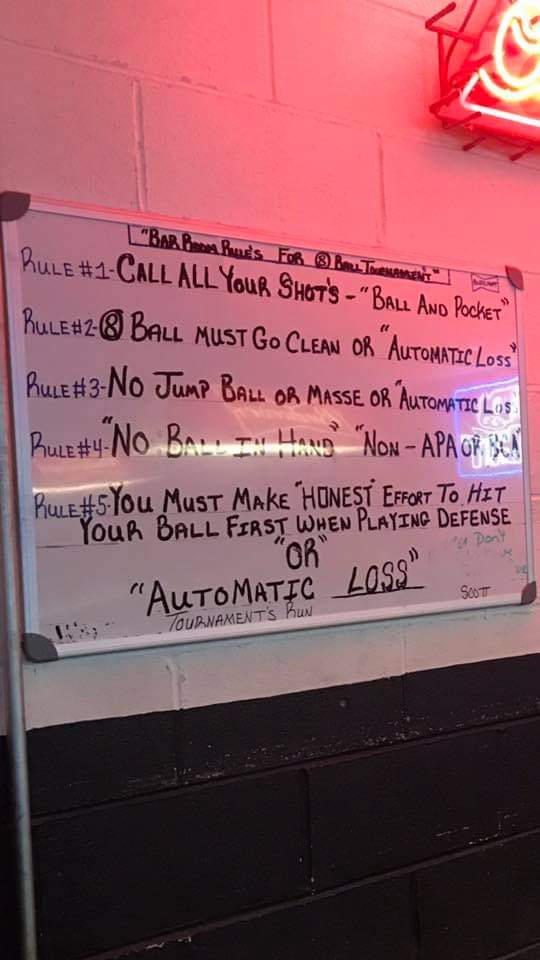 "BAR ROOM RULE'S FOR ⑧ BALL TOURNAMENT"
RULE #1-CALL ALL YOUR SHOT'S - "BALL AND POCKET"
RULE #2-⑧ BALL MUST GO CLEAN OR "AUTOMATIC LOSS"
RULE #3-NO JUMP BALL OR MASSE OR "AUTOMATIC LOS
RULE #4-"NO BALL IN HAND" "NON - APA OR BCA
RULE #5-YOU MUST MAKE "HONEST EFFORT TO HIT
YOUR BALL FIRST WHEN PLAYING DEFENSE
"OR"
Don't
"AUTOMATIC LOSS"
SCOTT
TOURNAMENT'S RUN